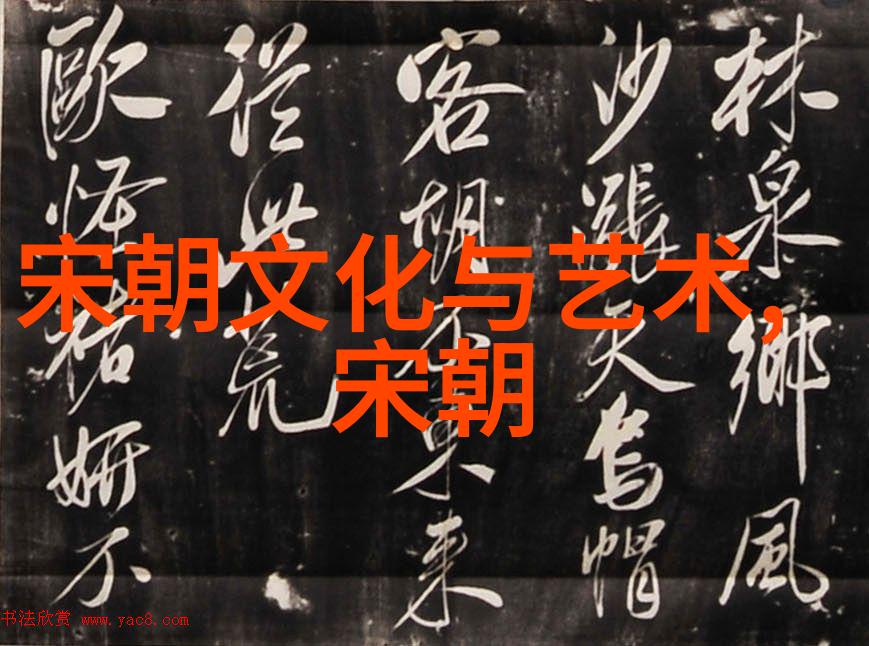 林泉鄉風
沙漲天烏帽
客胡不來來
從此荒
歐怪褚妍不
宋朝文化与艺术,
宋朝
书法欣赏 www.yac8.com